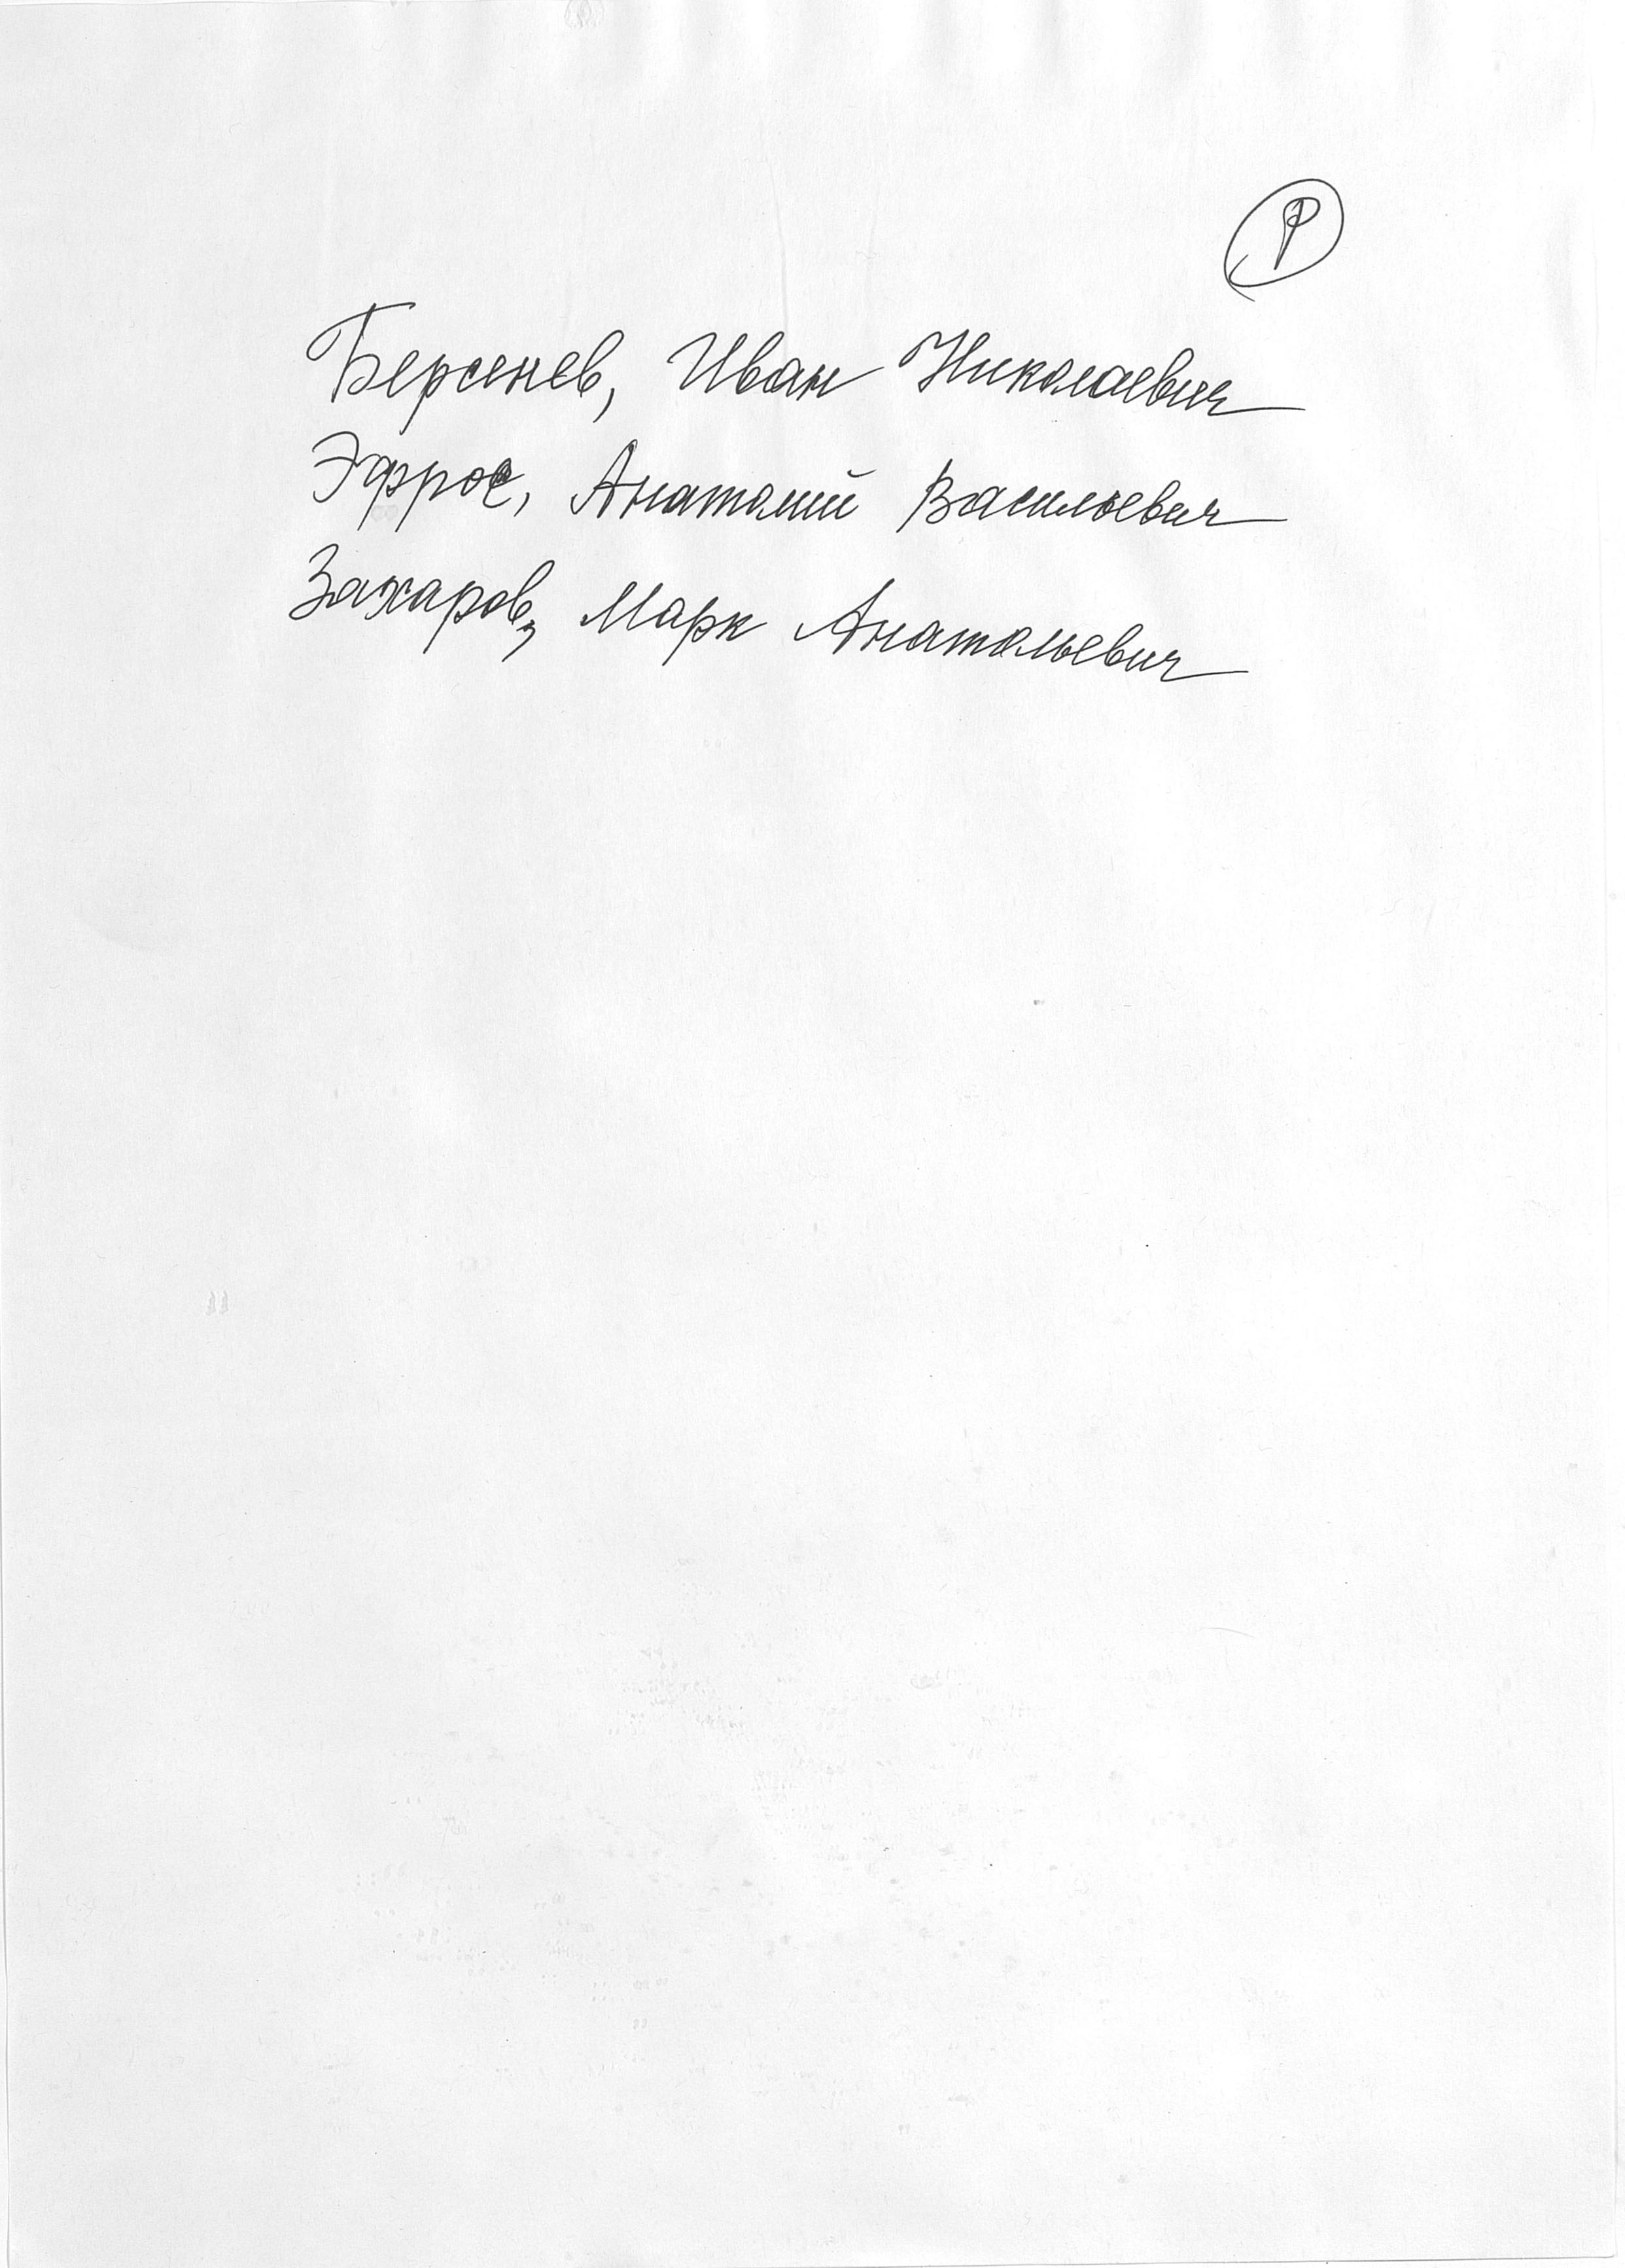 Р
Берсенев, Иван Николаевич
Эфрос, Анатолий Васильевич
Захаров, Марк Анатольевич